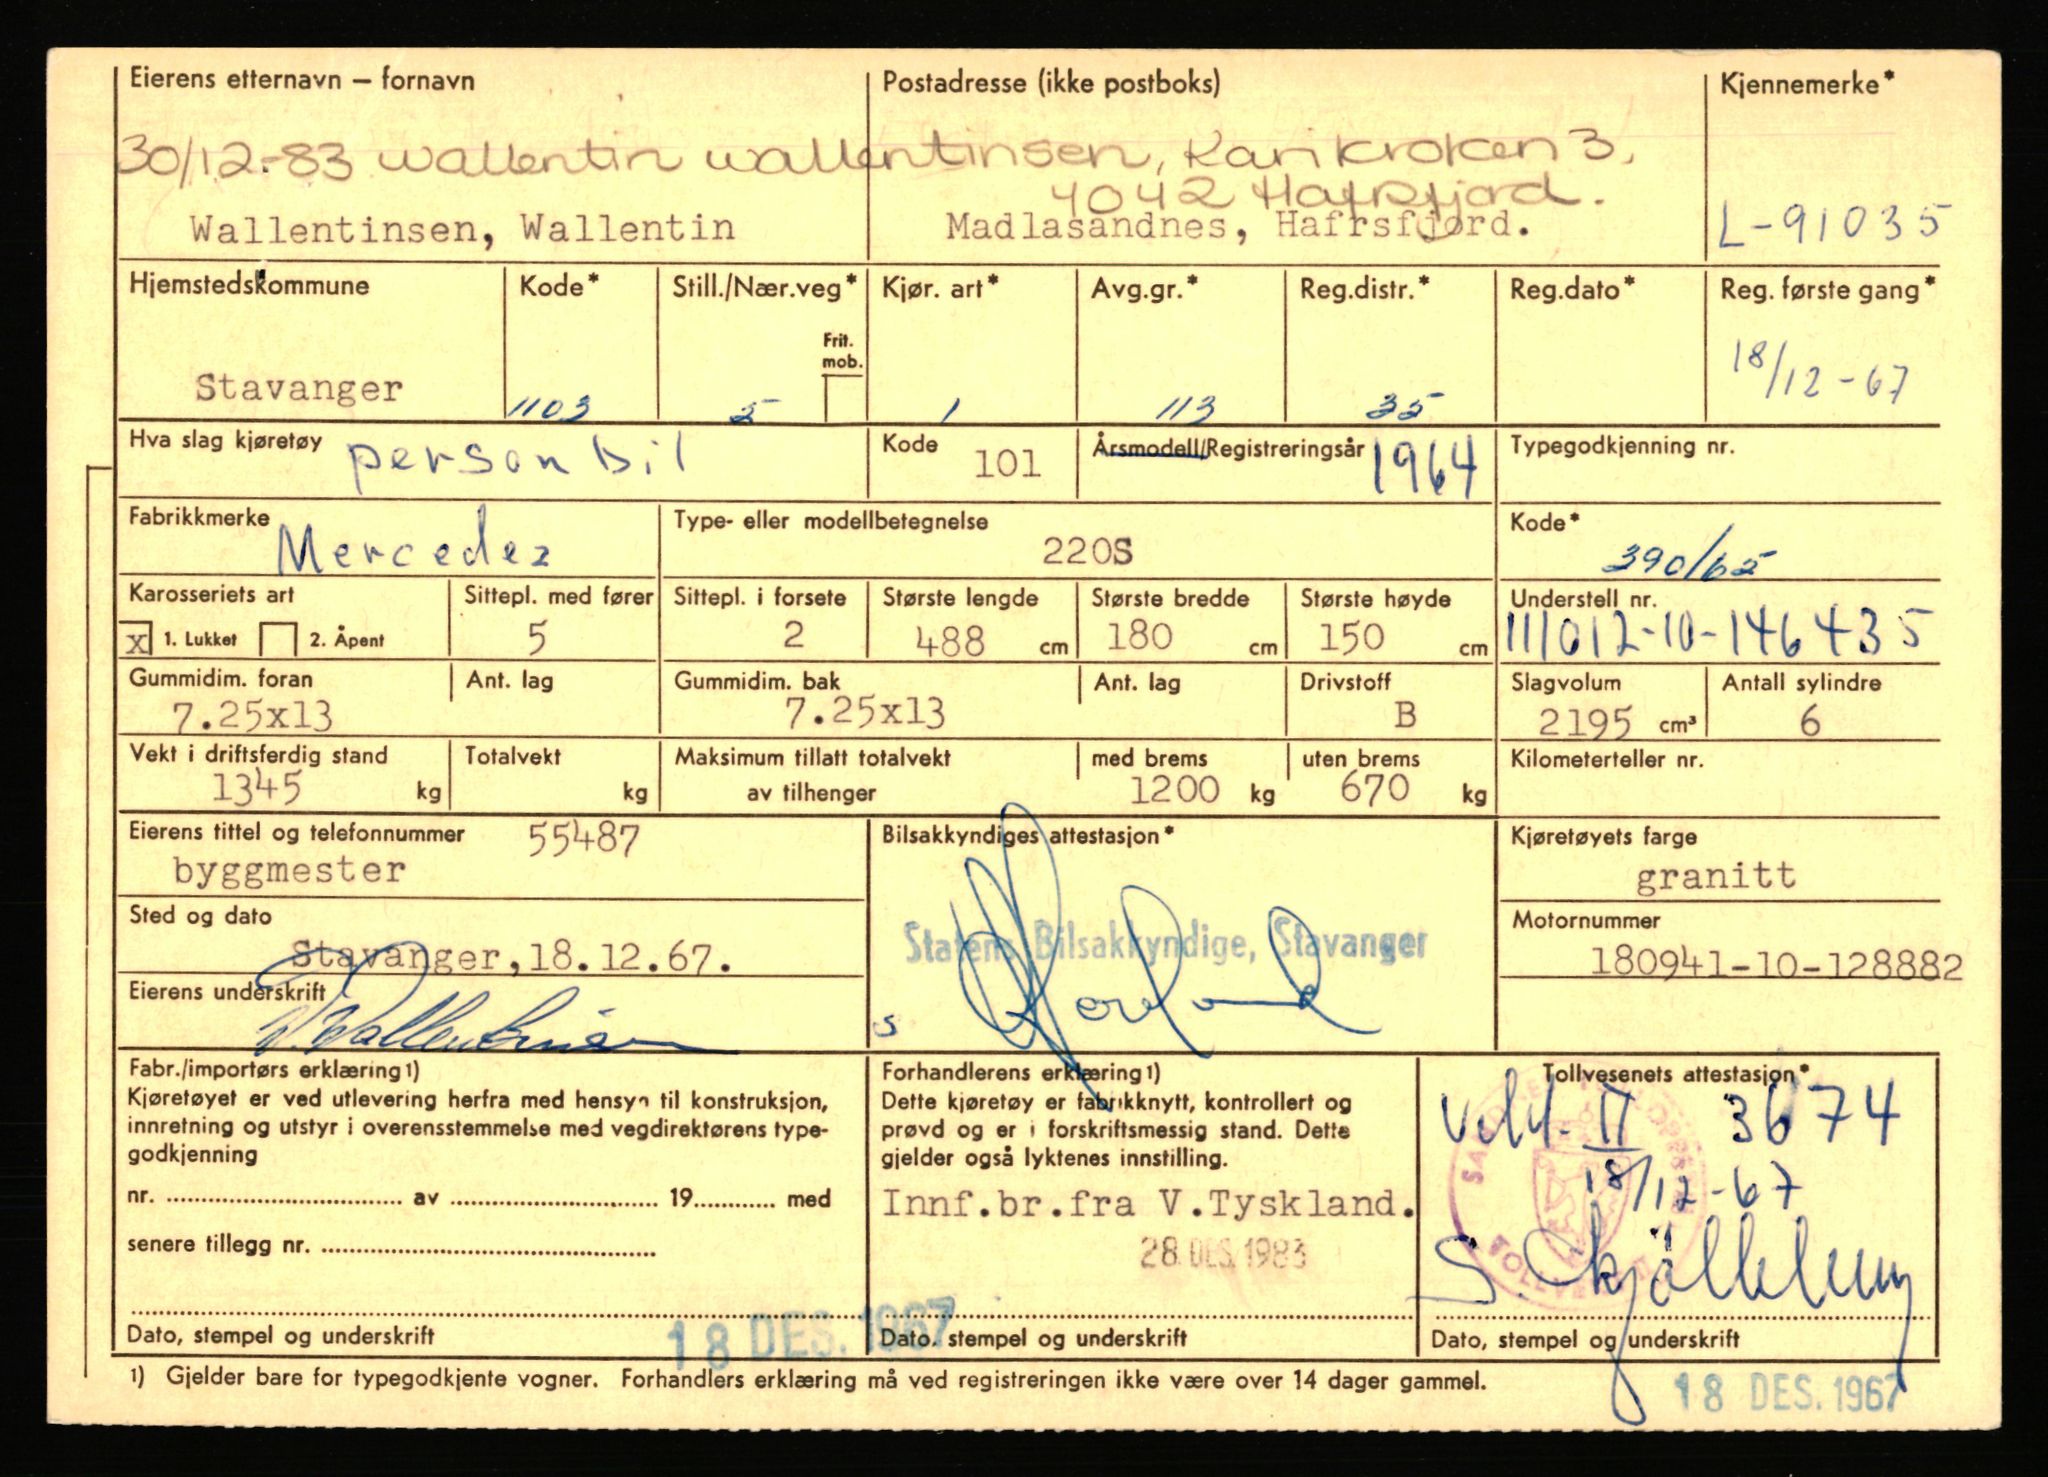 Eierens etternavn — fornavn Postadresse (ikke postboks) Kjennemerke*
30/12-83 Wallentin Wallentinsen, Karikroken 3,
4042 Hafrsfjord.
Wallentinsen, Wallentin Madlasandnes, Hafrsfjord. L-91035
Hjemstedskommune Kode* Still./Nær.veg* Kjør. art* Avg.gr.* Reg.distr.* Reg.dato* Reg. første gang*
Frit. mob.
Stavanger 1103 5 1 113 35 18/12-67
Hva slag kjøretøy personbil Kode 101 Årsmodell/Registreringsår 1964 Typegodkjenning nr.
Fabrikkmerke Type- eller modellbetegnelse Kode*
Mercedez 220S 390/65
Karosseriets art Sittepl. med fører Sittepl. i forsete Største lengde Største bredde Største høyde Understell nr.
x 1. Lukket 2. Åpent 5 2 488 cm 180 cm 150 cm 111012-10-146435
Gummidim. foran Ant. lag Gummidim. bak Ant. lag Drivstoff Slagvolum Antall sylindre
7.25x13 7.25x13 B 2195 cm³ 6
Vekt i driftsferdig stand Totalvekt Maksimum tillatt totalvekt med brems uten brems Kilometerteller nr.
1345 kg kg av tilhenger 1200 kg 670 kg
Eierens tittel og telefonnummer 55487 Bilsakkyndiges attestasjon* Kjøretøyets farge
byggmester granitt
Sted og dato Motornummer
Stavanger, 18.12.67. Statens Bilsakkyndige, Stavanger 180941-10-128882
Eierens underskrift
W. Wallentinsen s
Fabr./importørs erklæring 1) Forhandlerens erklæring 1) Tollvesenets attestasjon*
Kjøretøyet er ved utlevering herfra med hensyn til konstruksjon, Dette kjøretøy er fabrikknytt, kontrollert og 3674
innretning og utstyr i overensstemmelse med vegdirektørens type- prøvd og er i forskriftsmessig stand. Dette
godkjenning gjelder også lyktenes innstilling. 18/12-67
nr. av 19 med Innf.br.fra V.Tyskland.
senere tillegg nr. 28. DES. 1983
18 DES. 1967
Dato, stempel og underskrift Dato. stempel og underskrift Dato, stempel og underskrift
1) Gjelder bare for typegodkjente vogner. Forhandlers erklæring må ved registreringen ikke være over 14 dager gammel.
18 DES. 1967